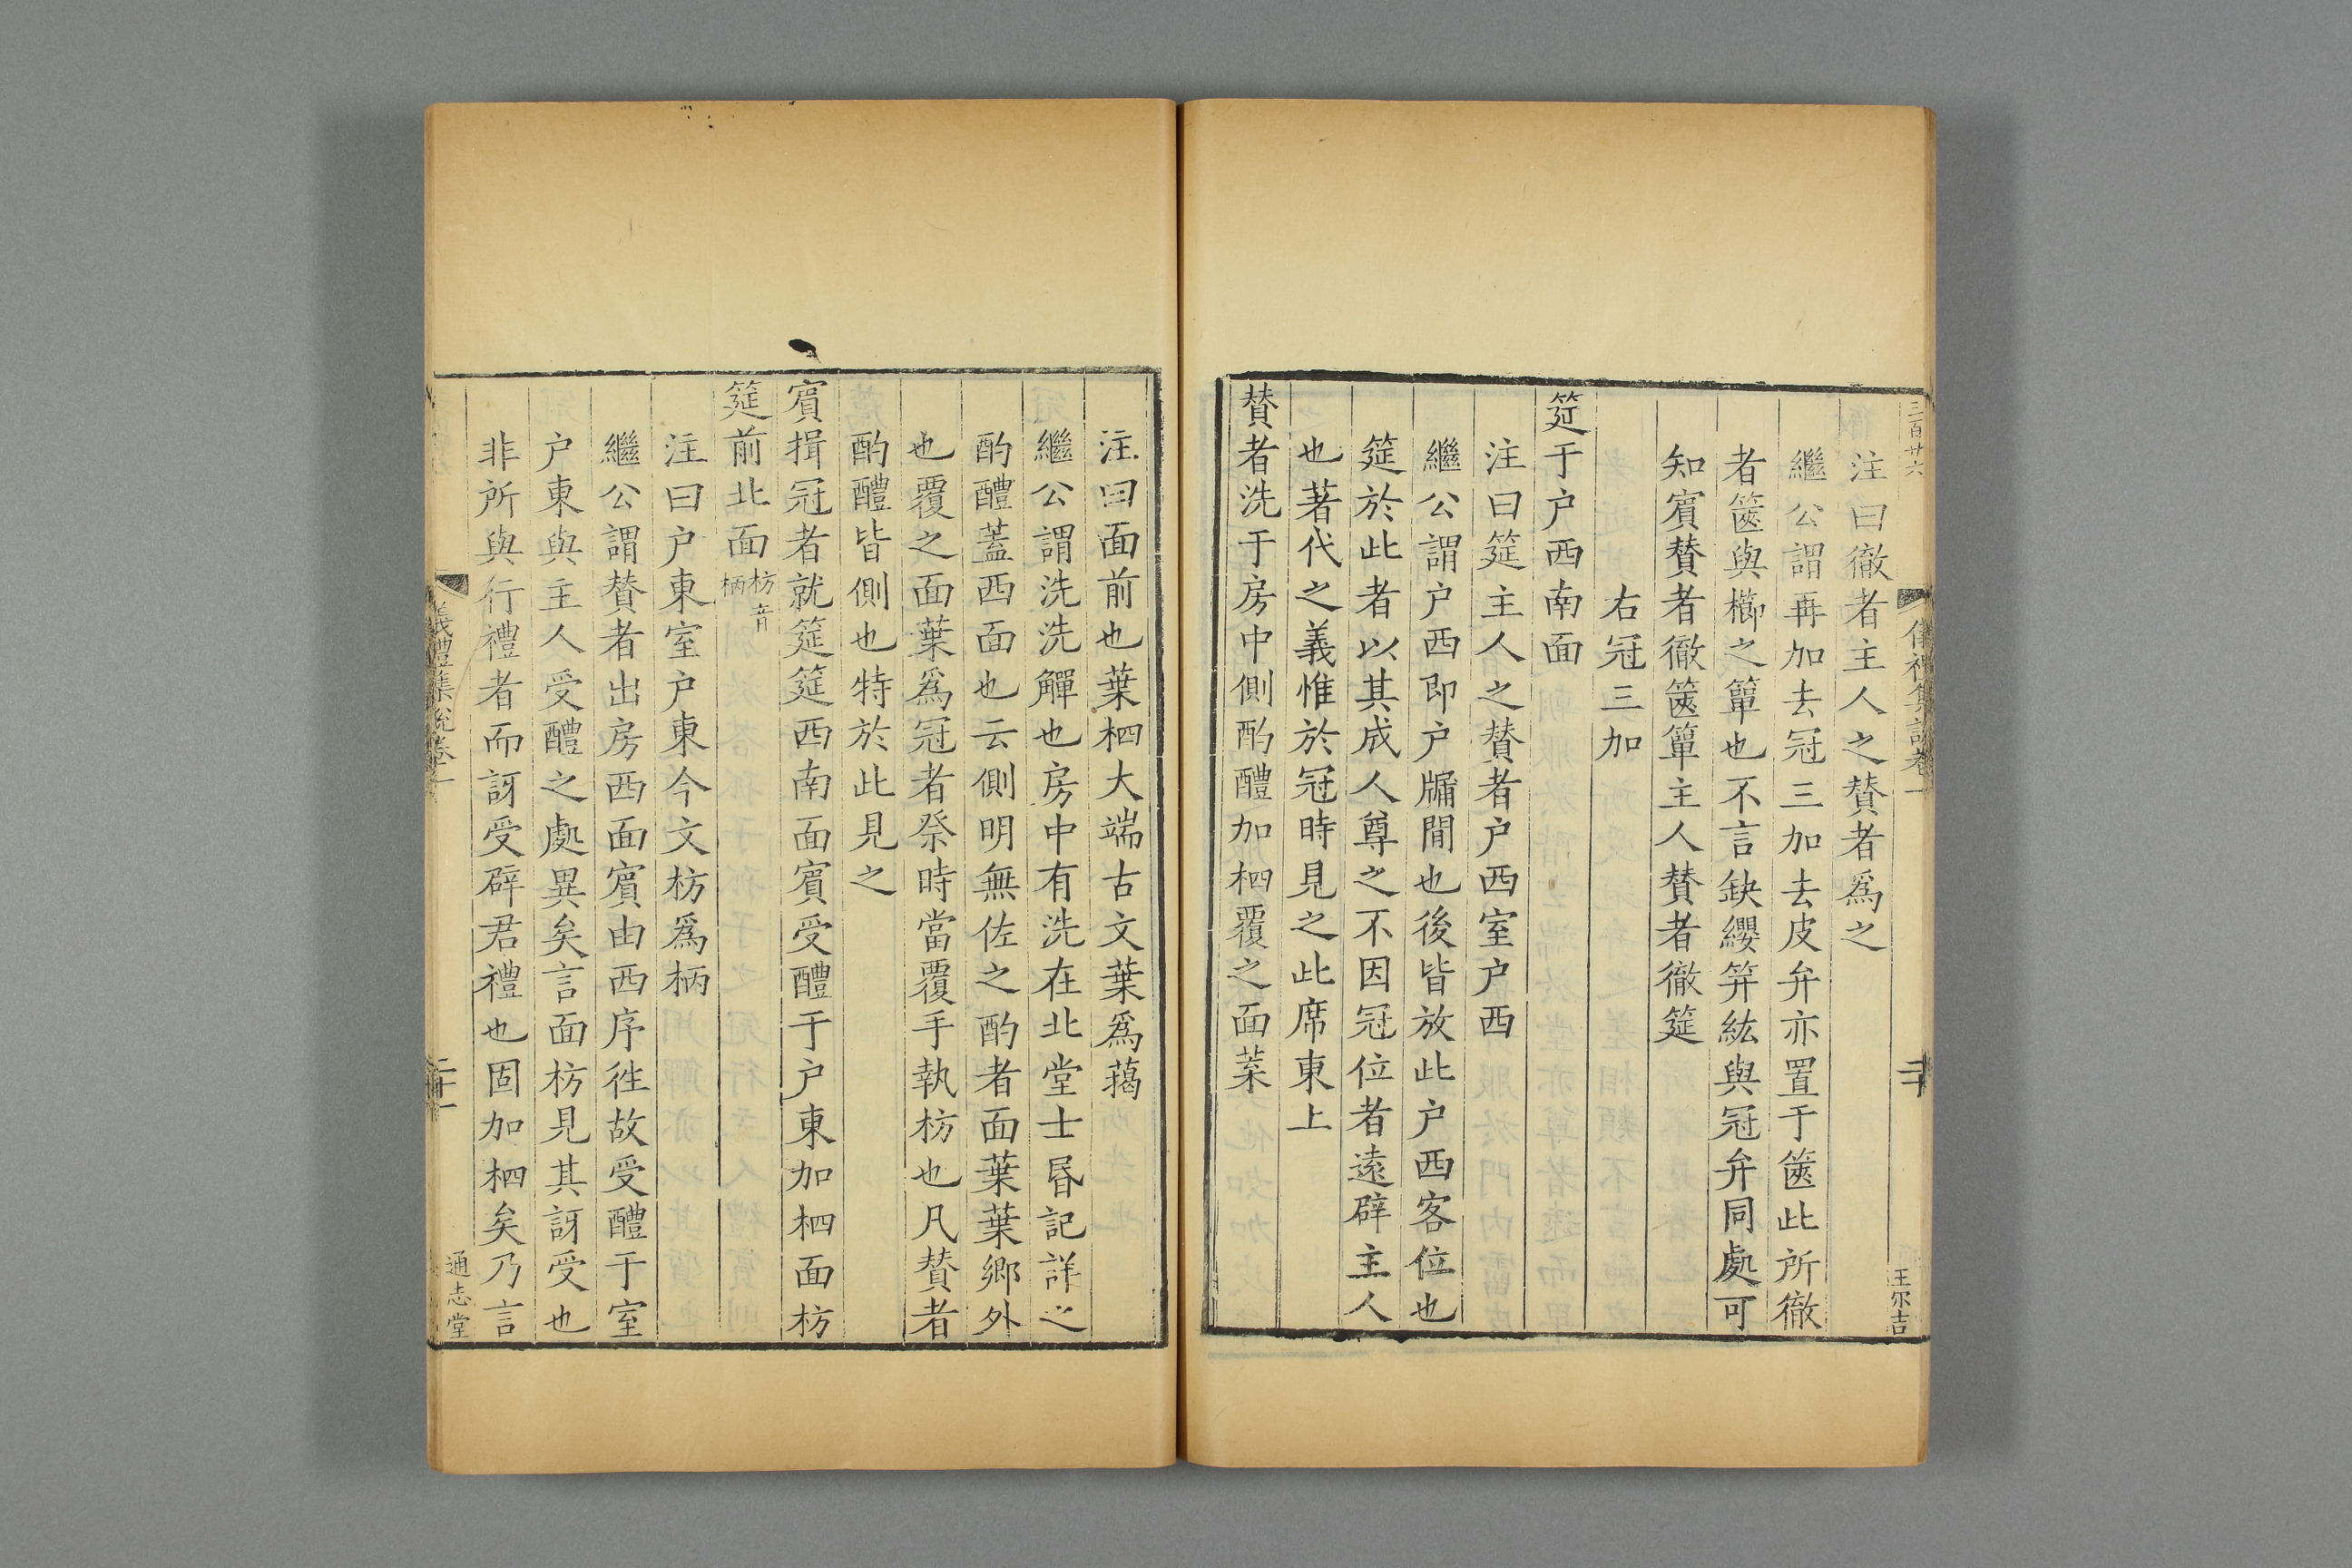 三百廿六
儀禮集說卷一
二十
王尔吉
注曰徹者主人之贊者爲之
繼公謂再加去冠三加去皮弁亦置于篋此所徹
者篋與櫛之簞也不言缺纓笄紘與冠弁同處可
知賓贊者徹篋簞主人贊者徹筵
右冠三加
筵于户西南面
注曰筵主人之贊者户西室户西
繼公謂户西即户牖間也後皆放此户西客位也
筵於此者以其成人尊之不因冠位者遠辟主人
也著代之義惟於冠時見之此席東上
贊者洗于房中側酌醴加柶覆之面葉
注曰面前也葉柶大端古文葉爲擖
繼公謂洗洗觶也房中有洗在北堂士昏記詳之
酌醴蓋西面也云側明無佐之酌者面葉葉鄉外
也覆之面葉爲冠者祭時當覆手執枋也凡贊者
酌醴皆側也特於此見之
賓揖冠者就筵筵西南面賓受醴于户東加柶面枋
筵前北面枋音柄
注曰户東室户東今文枋爲柄
繼公謂贊者出房西面賓由西序徃故受醴于室
户東與主人受醴之處異矣言面枋見其訝受也
非所與行禮者而訝受辟君禮也固加柶矣乃言
儀禮集說卷一
二十一
通志堂